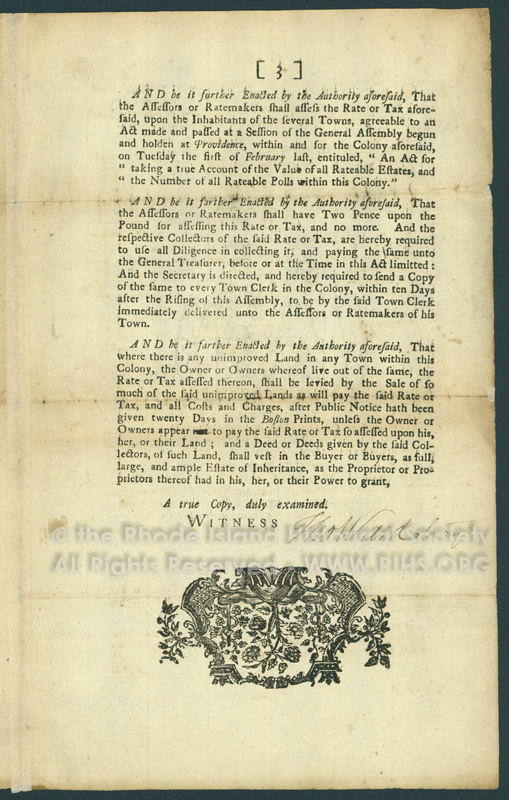 [ 3 ]
AND be it further Enacted by the Authority aforesaid, That
the Assessors or Ratemakers shall assess the Rate or Tax afore-
said, upon the Inhabitants of the several Towns, agreeable to an
Act made and passed at a Session of the General Assembly begun
and holden at Providence, within and for the Colony aforesaid,
on Tuesday the first of February last, entituled, “ An Act for
“ taking a true Account of the Value of all Rateable Estates, and
“ the Number of all Rateable Polls within this Colony.”
AND be it further Enacted by the Authority aforesaid, That
the Assessors or Ratemakers shall have Two Pence upon the
Pound for assessing this Rate or Tax, and no more. And the
respective Collectors of the said Rate or Tax, are hereby required
to use all Diligence in collecting it, and paying the same unto
the General Treasurer, before or at the Time in this Act limitted:
And the Secretary is directed, and hereby required to send a Copy
of the same to every Town Clerk in the Colony, within ten Days
after the Rising of this Assembly, to be by the said Town Clerk
immediately delivered unto the Assessors or Ratemakers of his
Town.
AND be it further Enacted by the Authority aforesaid, That
where there is any unimproved Land in any Town within this
Colony, the Owner or Owners whereof live out of the same, the
Rate or Tax assessed thereon, shall be levied by the Sale of so
much of the said unimproved Lands as will pay the said Rate or
Tax, and all Costs and Charges, after Public Notice hath been
given twenty Days in the Boston Prints, unless the Owner or
Owners appear to pay the said Rate or Tax so assessed upon his,
her, or their Land ; and a Deed or Deeds given by the said Col-
lectors, of such Land, shall vest in the Buyer or Buyers, as full,
large, and ample Estate of Inheritance, as the Proprietor or Pro-
prietors thereof had in his, her, or their Power to grant,
A true Copy, duly examined.
WITNESS Tho Ward
© the Rhode Island Historical Society
All Rights Reserved - WWW.RIHS.ORG